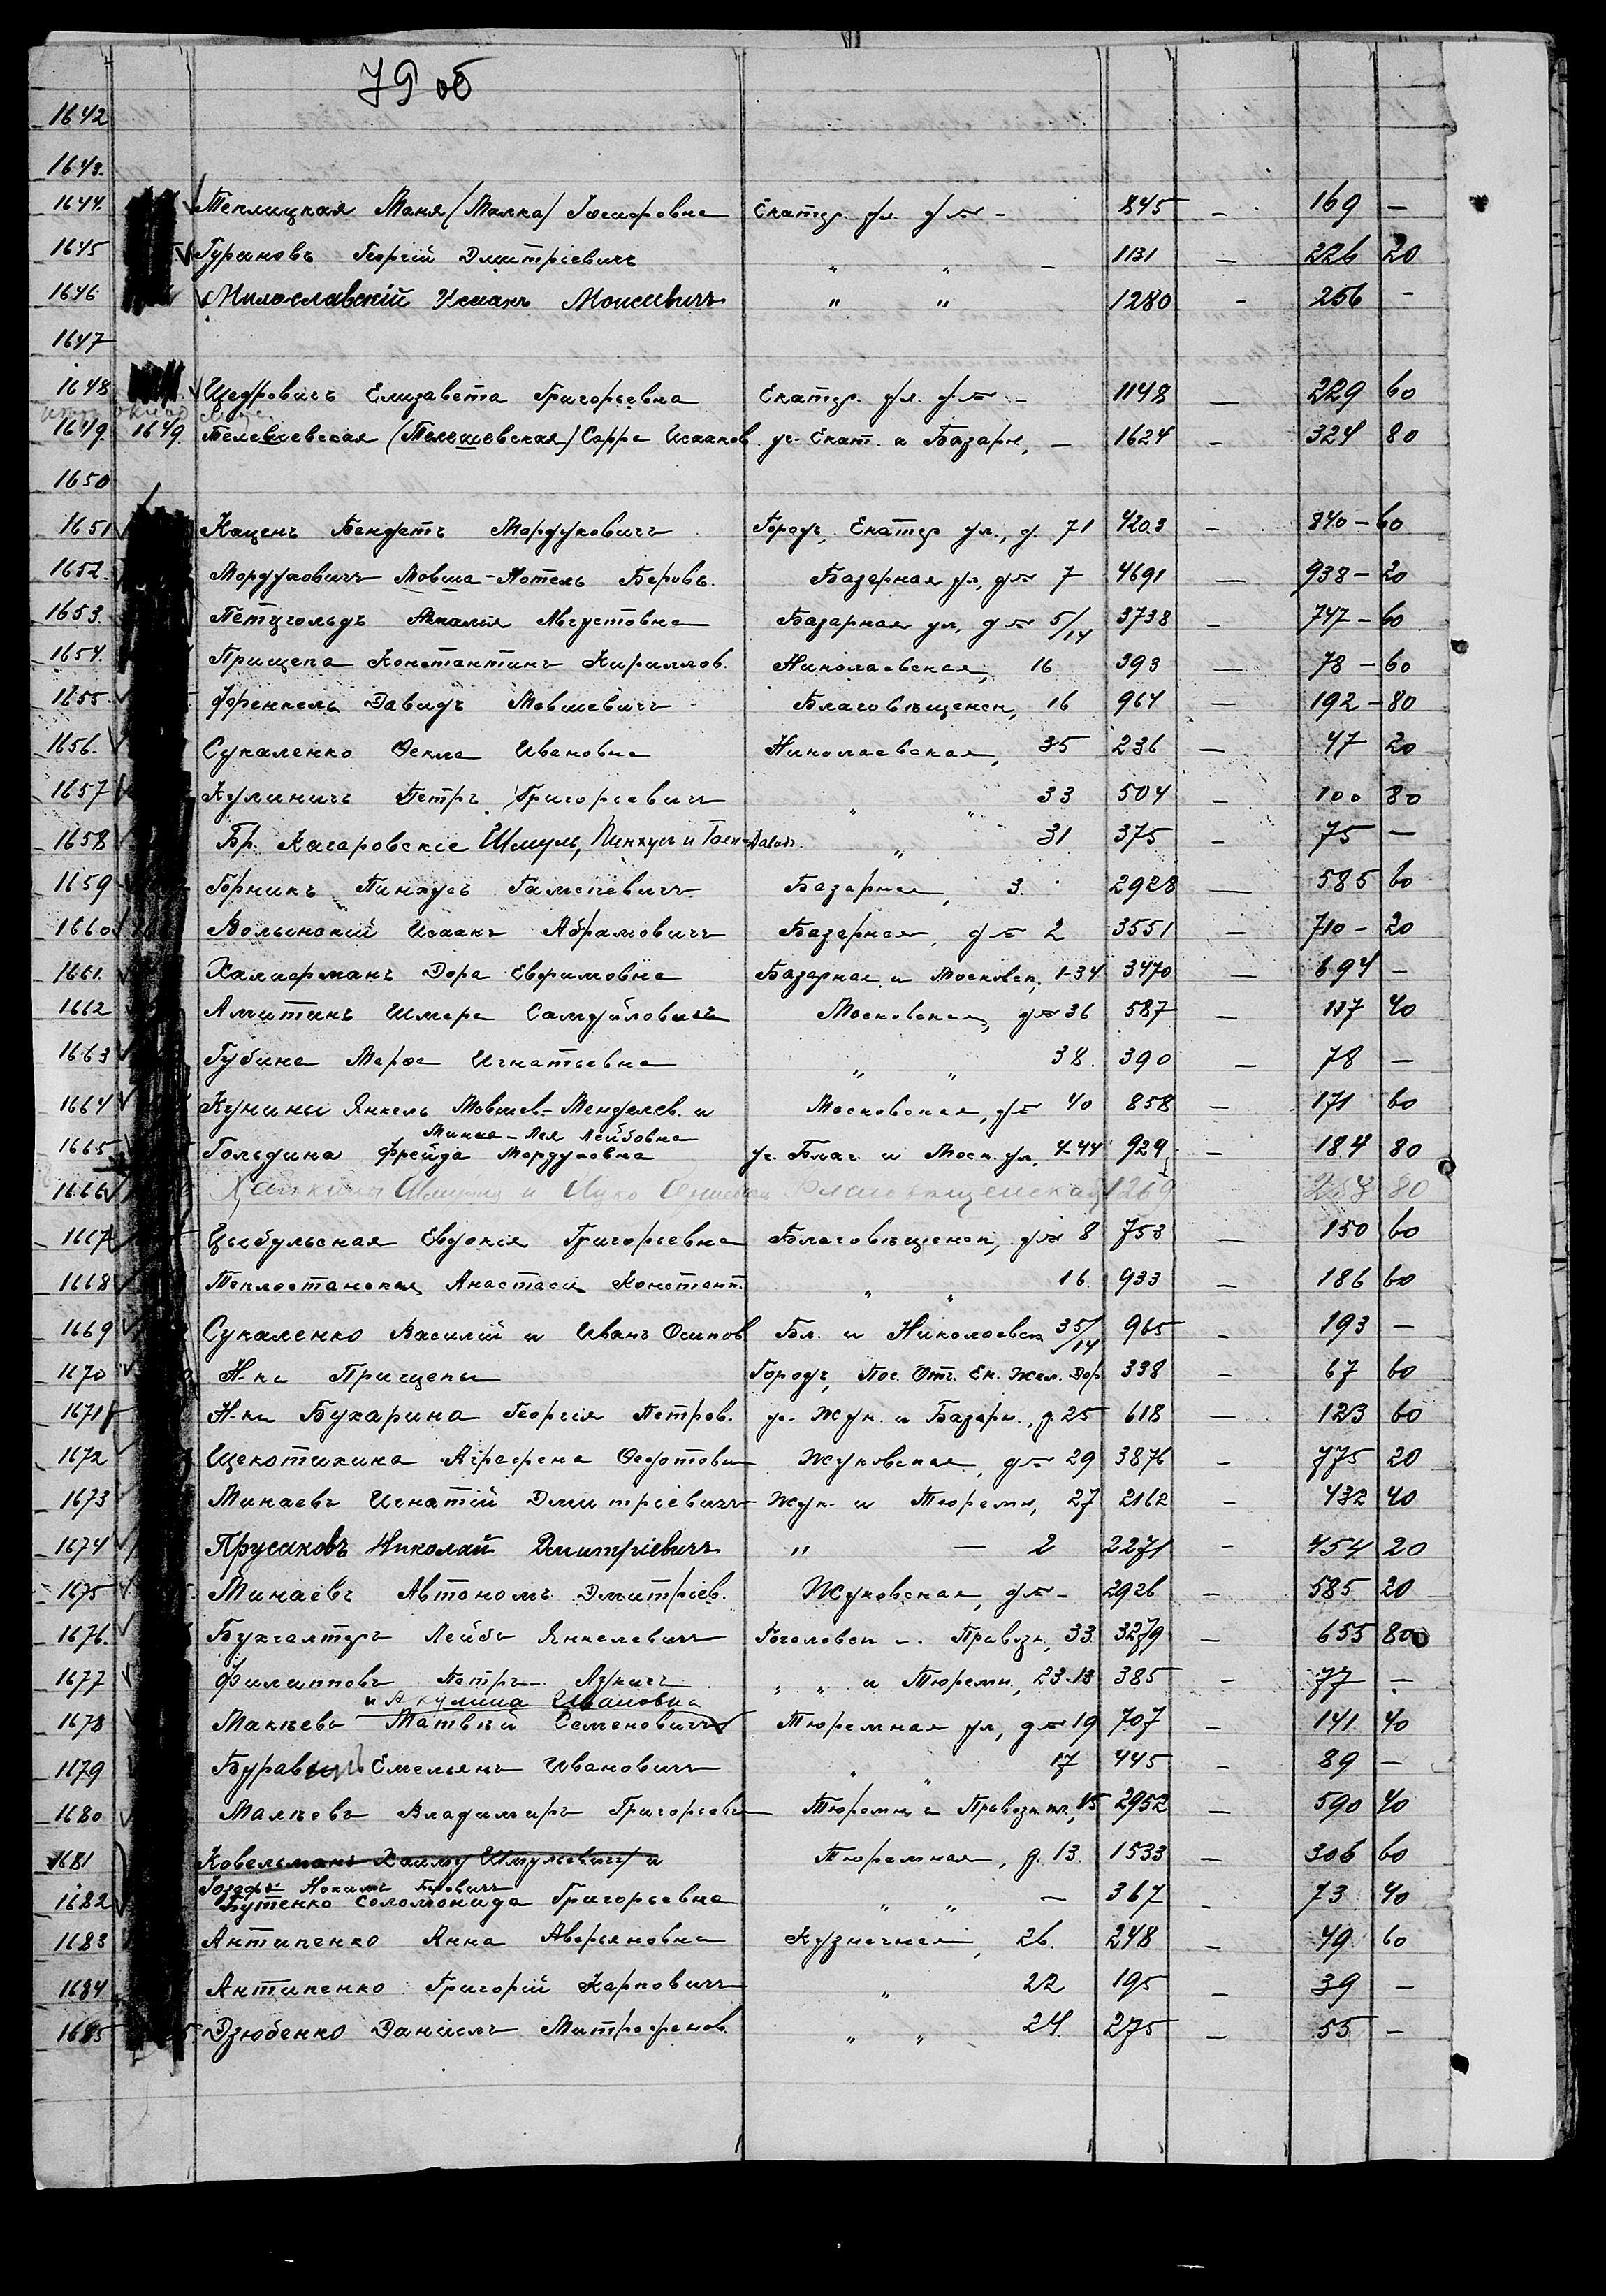 79 об
1642
1643.
1644. Теплицкая Маня (Малка) Іосифовна Екатер. ул. д № - 845 — 169 —
1645 Гурановъ Георгій Дмитріевичъ " " — 1131 — 226 20
1646 Милославскій Исаакъ Моисеевичъ " " 1280 - 256 -
1647
1648 Щедровичъ Елизавета Григорьевна Екатер. ул. д № - 1148 — 229 60
1649. 1649. Телевшевская (Телешевская) Сарра Исааков. уг. Екат. и Базарн, — 1624 — 324 80
1650
1651 Каценъ Бендетъ Мордуховичъ Городъ, Екатер ул., д. 71 4203 — 840 - 60
1652. Мордуховичъ Мовша-Мотель Беровъ. Базарная ул, д № 7 4691 — 938 - 20
1653. Петцгольдъ Амалія Августовна Базарная ул, д № 5/14 3738 — 747 - 60
1654. Прищепа Константинъ Кириллов. Николаевская, 16 393 — 78 - 60
1655. Френкель Давидъ Мовшевичъ Благовѣщенск, 16 964 — 192 - 80
1656. Сукаленко Фекла Ивановна Николаевская, 35 236 — 47 20
1657 Кулиничъ Петръ Григорьевичъ " " 33 504 — 100 80
1658 Бр. Кагаровскіе Шмуль, Пинхусъ и " 31 375 - 75 —
1659 Горникъ Пинхусъ Базарная, 3. 2928 — 585 60
1660 Волынскій Исаакъ Абрамовичъ Базарная, д № 2 3551 — 710 - 20
1661. Халифманъ Дора Ефимовна Базарная и Московск, 1-34 3470 — 694 —
1662 Амитинъ Шмера Самуйловичъ Московская, д № 36 587 — 117 40
1663 Губина Марфа Игнатьевна " " 38. 390 — 78 —
1664 Кунины Янкель Мовшев-Менделев. и Московская, д № 40 858 — 171 60
Минна-Лея Лейбовна
1665 Гольдина Фрейда Мордуховна уг. Благ. и Моск. ул, 4-44 929 — 184 80
1666 Хайкины и Благовещенская 1269 80
1667 Цыбульская Евдокія Григорьевна Благовѣщенск, д № 8 753 — 150 60
1668 Теплостанская Анастасія Констант. " " 16. 933 — 186 60
1669 Сукаленко Василій и Иванъ Осипов Бл. и Николаевск 35/14 965 — 193 —
1670 Н-ки Прищепы Городъ, Пос. Отч. Ек. Жел. Дор 338 — 67 60
1671 Н-ки Бухарина Георгія Петров. уг. Жук. и Базарн., д 25 618 — 123 60
1672 Щекотихина Аграфена Федотовн Жуковская, д № 29 3876 — 775 20
1673 Минаевъ Игнатій Дмитріевичъ Жук. и Тюремн, 27 2162 - 432 40
1674 Прусаковъ Николай Дмитріевичъ " — 2 2271 - 454 20
1675 Минаевъ Автономъ Дмитріев. Жуковская, д № - 2926 - 585 20
1676. Бухгалтеръ Лейба Янкелевичъ Гоголевск и. Провозн, 33. 3279 — 655 80
1677 Филипповъ Петръ " " и Тюремн, 23-18 385 — 77 —
и Акулина Ивановна
1678 Макѣевъ Матвѣй Семеновичъ Тюремная ул, д № 19 707 — 141 40
1679 Емельянъ Ивановичъ " " 17 445 — 89 —
1680 Малѣевъ Владимиръ Григорьев Тюремн и Провозн. пл, 15 2952 — 590 40
1681 Ковельманъ Хаиму Шмулевичъ и Тюремная, д. 13. 1533 — 306 60
1682 Бутенко Соломонида Григорьевна " " — 367 - 73 40
1683 Антипенко Анна Аверьяновна Кузнечная, 26. 248 — 49 60
1684 Антипенко Григорій Карповичъ " 22 195 — 39 —
1685 Дзюбенко Даніилъ Митрофанов. " " 24. 275 — 55 —